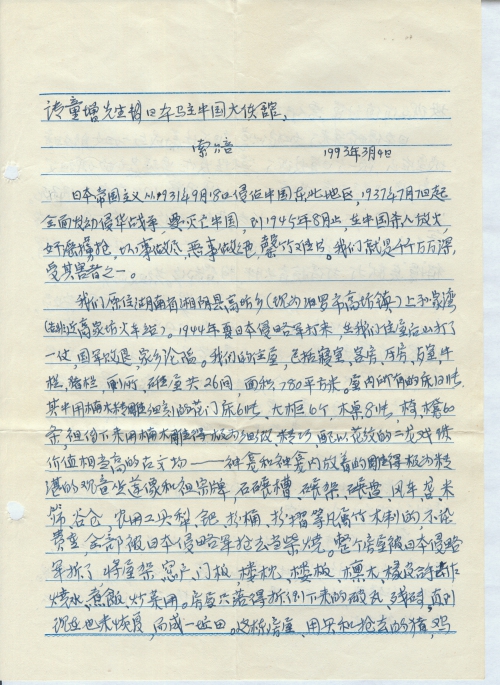 请童增先生转日本驻中国大使馆,
索赔 1993年3月4日
日本帝国主义从1931年9月18日侵占中国东北地区,1937年7月7日起
全面发动侵华战争,要灭亡中国,到1945年8月止,在中国杀人放火,
奸淫掳抢,坏事做尽,恶事做绝,罄竹难书。我们就是千千万万深
受其害者之一。
我们原住湖南省湘阴县高坊乡(现为汨罗市高坊镇)上孙家湾
(靠近高家坊火车站)。1944年夏日本侵略军打来,在我们住屋后山打了
一仗,国军败退,家乡沦陷。我们的住屋,包括寝室、客房、厅房、 牛
栏、猪栏、厕所、碓屋共26间,面积780平方米。室内所有的床 张,
其中用楠木 细刻的花门床6张,大柜6个,木桌8张,椅、凳60
条,祖传下来用楠木 板为细做,精巧,配以花纹的二龙戏珠
价值相当高的古文物——神龛和神龛内放着的 板为精
湛的观音坐莲像和祖宗牌,石碾槽、碾架、碾盘、风车、 、米
筛、谷仓,农用工具犁、耙、 桶、 等凡属竹木制的,不论
贵重,全部被日本侵略军抢去当柴烧。整个房屋被日本侵略
军拆了,将屋架、窗户、门板、楼枕、楼板、檩木、橡皮
烧水、煮饭、炒菜用。房屋只落得拆倒下来的破瓦、残砖,直到
现在也未恢复,而成一址田。烧拆房屋,用具和抢去的猪,鸡